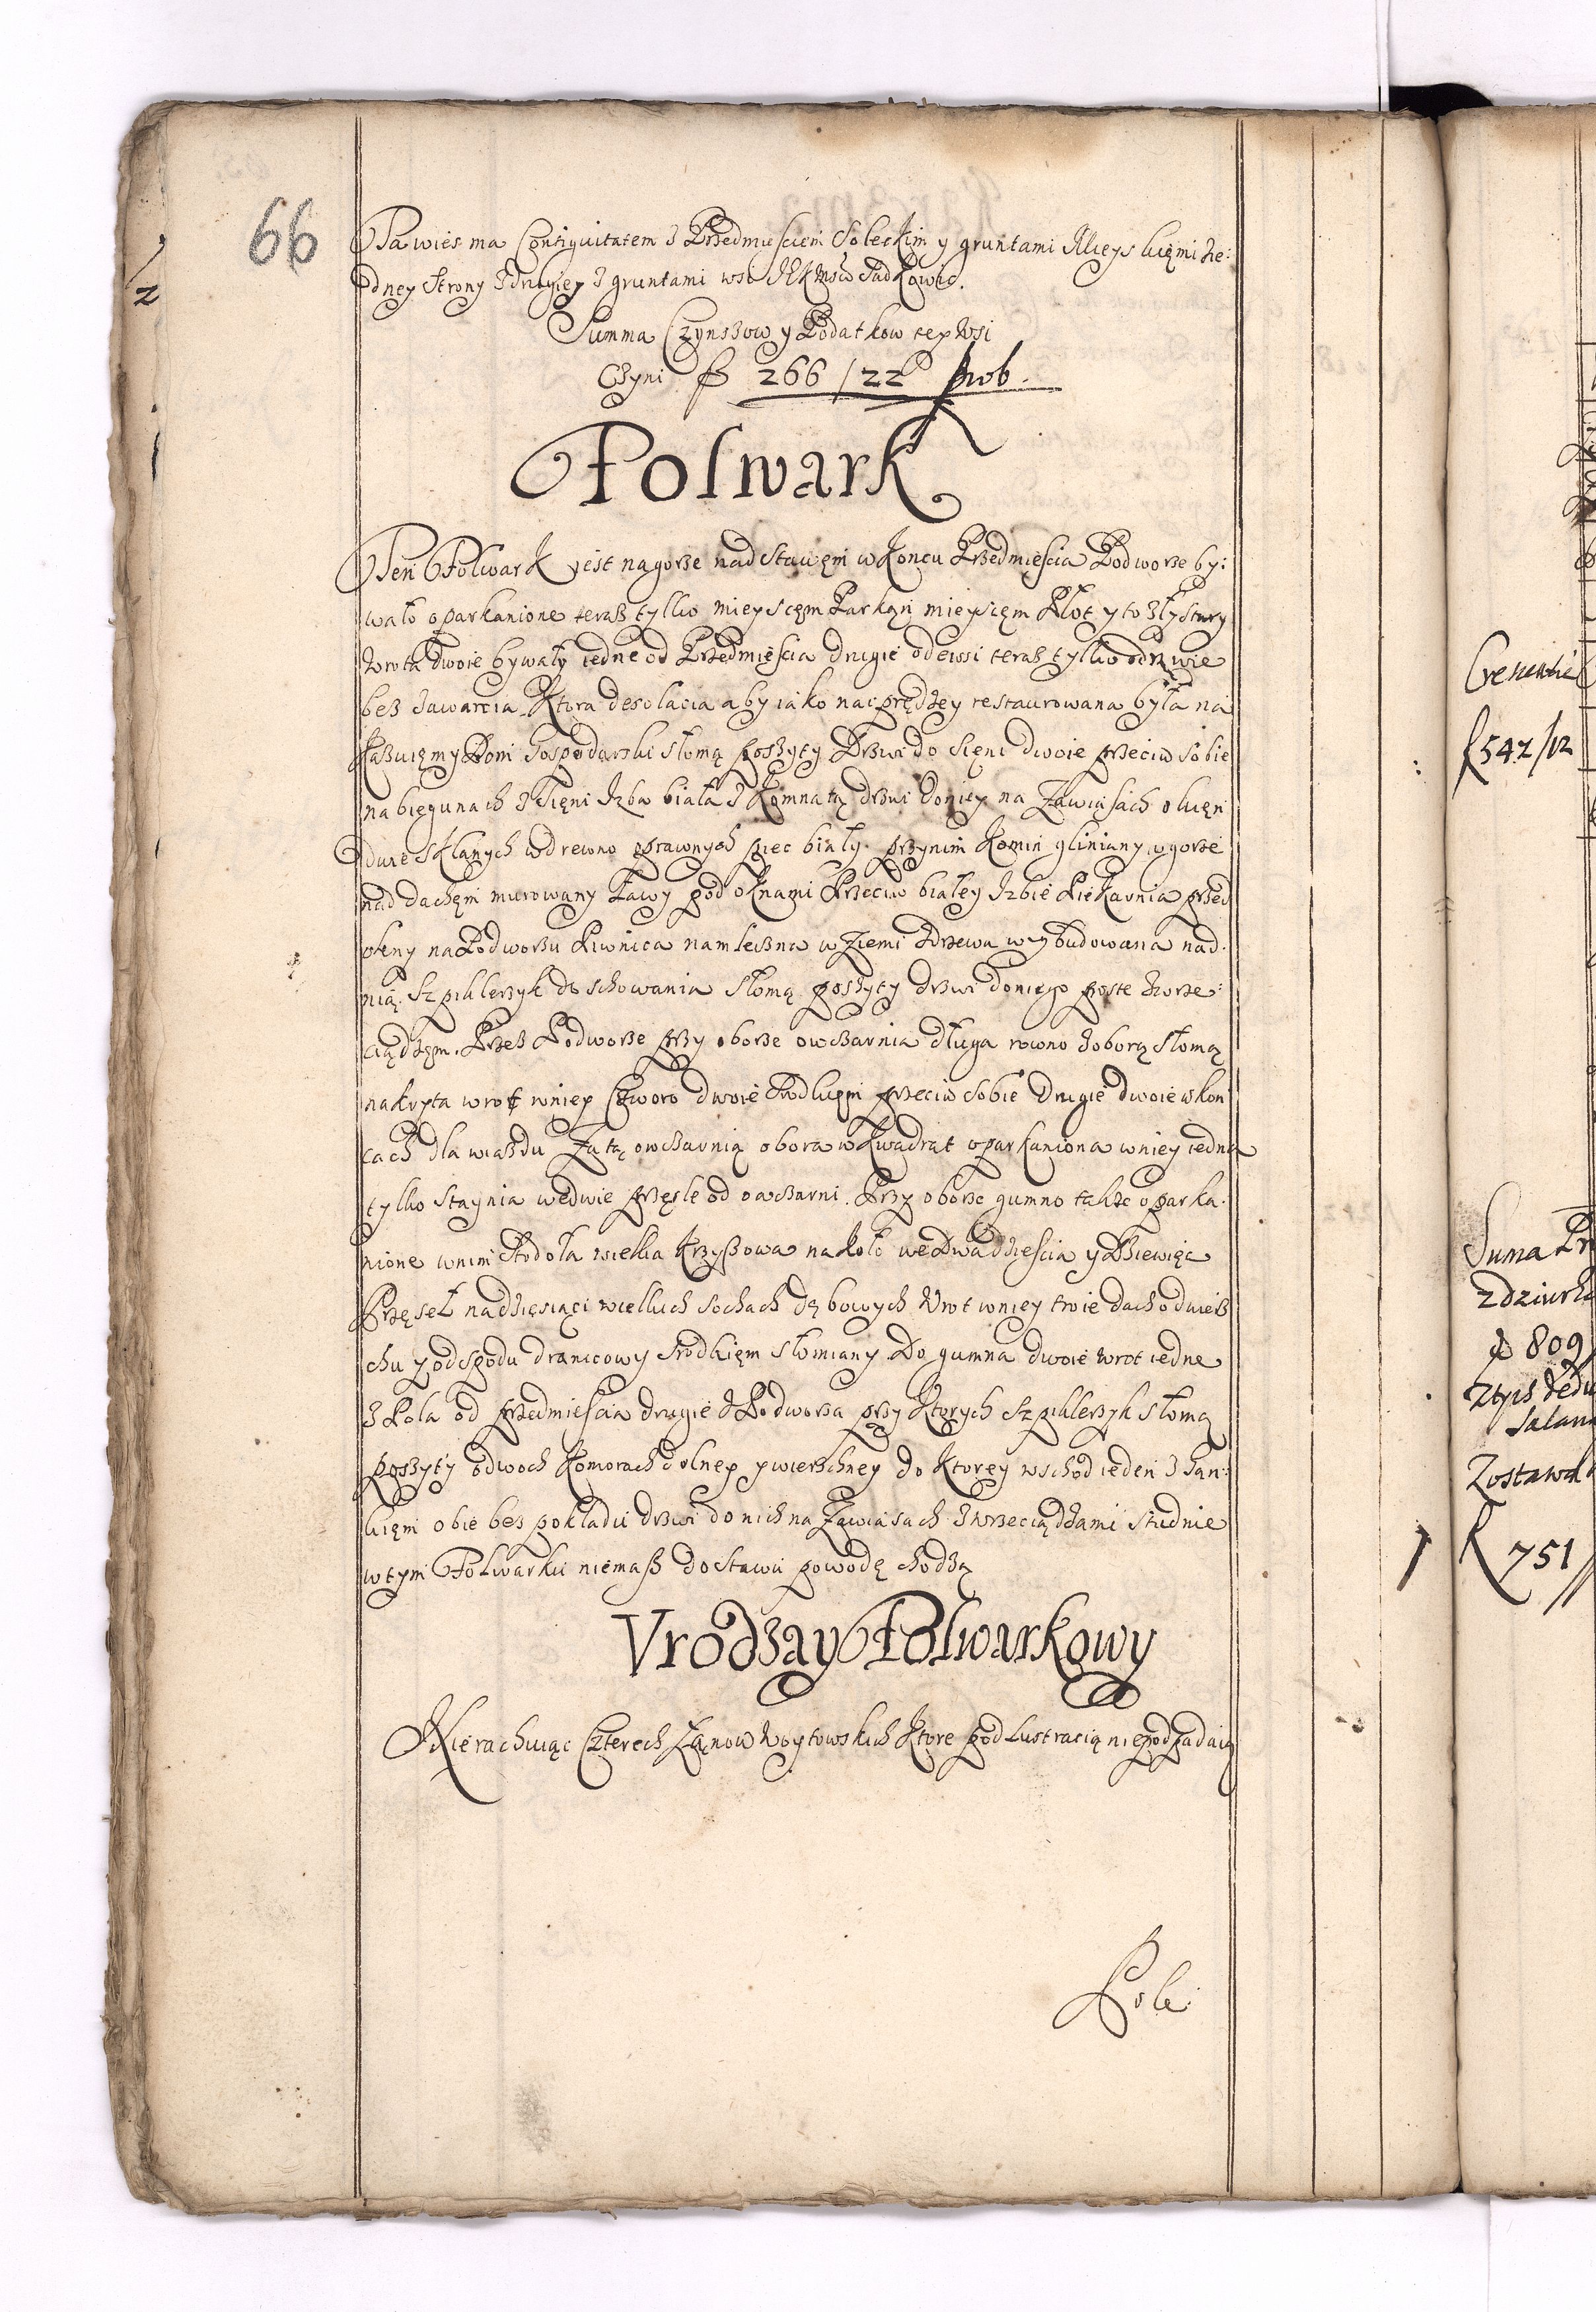 66
Ta wies ma Contiguitatem z Przedmiesciem Soleckim y gruntami Mieyskiemi ze:
dney strony z drugiey z gruntami wsi JKMsci Sadkowic.
Summa Czynszow y Podatkow tey Wsi
Czyni fl 266 / 22 prob.
Folwark
Ten Folwark jest na gorze nad Stawęm w Koncu Przedmięscia Podworze by:
wało oparkanione teraz tylko mieyscęm Parkąn mieyscęm Płot y to zły stary
Wrota dwoie bywały iedne od Przedmięscia drugie od wsi teraz tylko odrzwie
bez zawarcia Ktora desolacia aby iako naiprędzey restaurowana była na
kazuięmy Dom Gospodarski słomą poszyty Drzwi do sięni dwoie przeciw sobie
na biegunach z Sięni Izba biała z Komnatą drzwi do niey na Zawiasach okięn
dwie sklanych w drewno oprawnych piec biały. przy nim Komin gliniany w gorze
nad dachęm murowany Ławy pod oknami Przeciw białey Izbie Piekarnia przed
okny na Podworzu Piwnica na mleczno w Ziemi z drzewa wybudowana nad.
nią. Szpiklerzyk do schowania słomą poszyty drzwi do niego proste z wrze:
ciądzęm. Przez Podworze przy oborze owczarnia długa rowno z oborą słomą
nakryta wrot w niey Czworo dwoie Podlugi przeciw sobie drugie dwoie w kon
cach dla wiazdu Za tą owczarnią obora w Kwadrat oparkaniona w niey iedna
tylko staynia we dwie pręsle od owczarni. Przy oborze gumno takze oparka.
nione w nim Stodoła wielka Krzyzowa na koło we Dwadziescia y Dziewięc
Przęseł na dziesiąci wielkich sochach dębowych Wrot w niey troie dach od wieß
chu y od spodu dranicowy srodkięm słomiany Do gumna dwoie wrot iedne
z Pola od przedmiescia drugie z Podworza przy Ktorych Szpiklerzyk słomą
poszyty o dwoch Komorach dolney y wierzchney do Ktorey wschod ieden z Gan:
kięm obie bez pokładu drzwi do nich na Zawiasach z wrzeciądzami studnie
w tym Folwarku niemaß do stawu po wodę chodzą
Vrodzay Folwarkowy
Nie rachuiąc Czterech Łanow Woytowskich Ktore pod Lustracią nie podpadaią
Pole
f 542/12
Suma
809
Zostawa
751